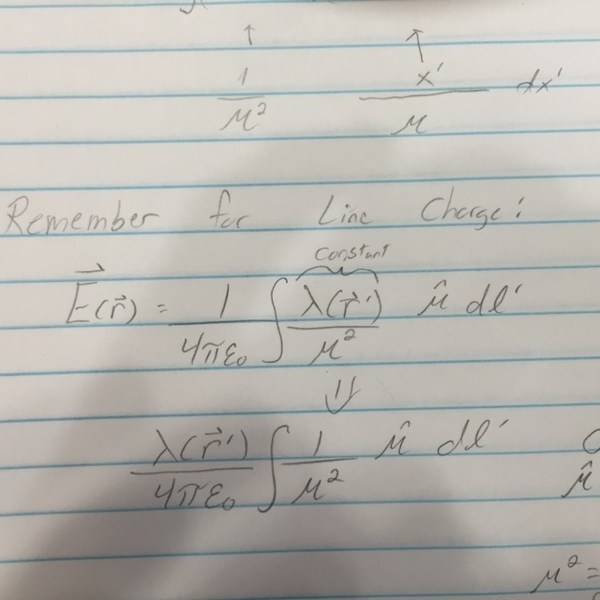 1/μ² x'/μ dx'
Remember for Line Charge:
constant
E⃗(r⃗) = 1/4πε₀ ∫ λ(r⃗')/μ² μ̂ dl'
⇓
λ(r⃗')/4πε₀ ∫ 1/μ² μ̂ dl'
μ̂
μ² =